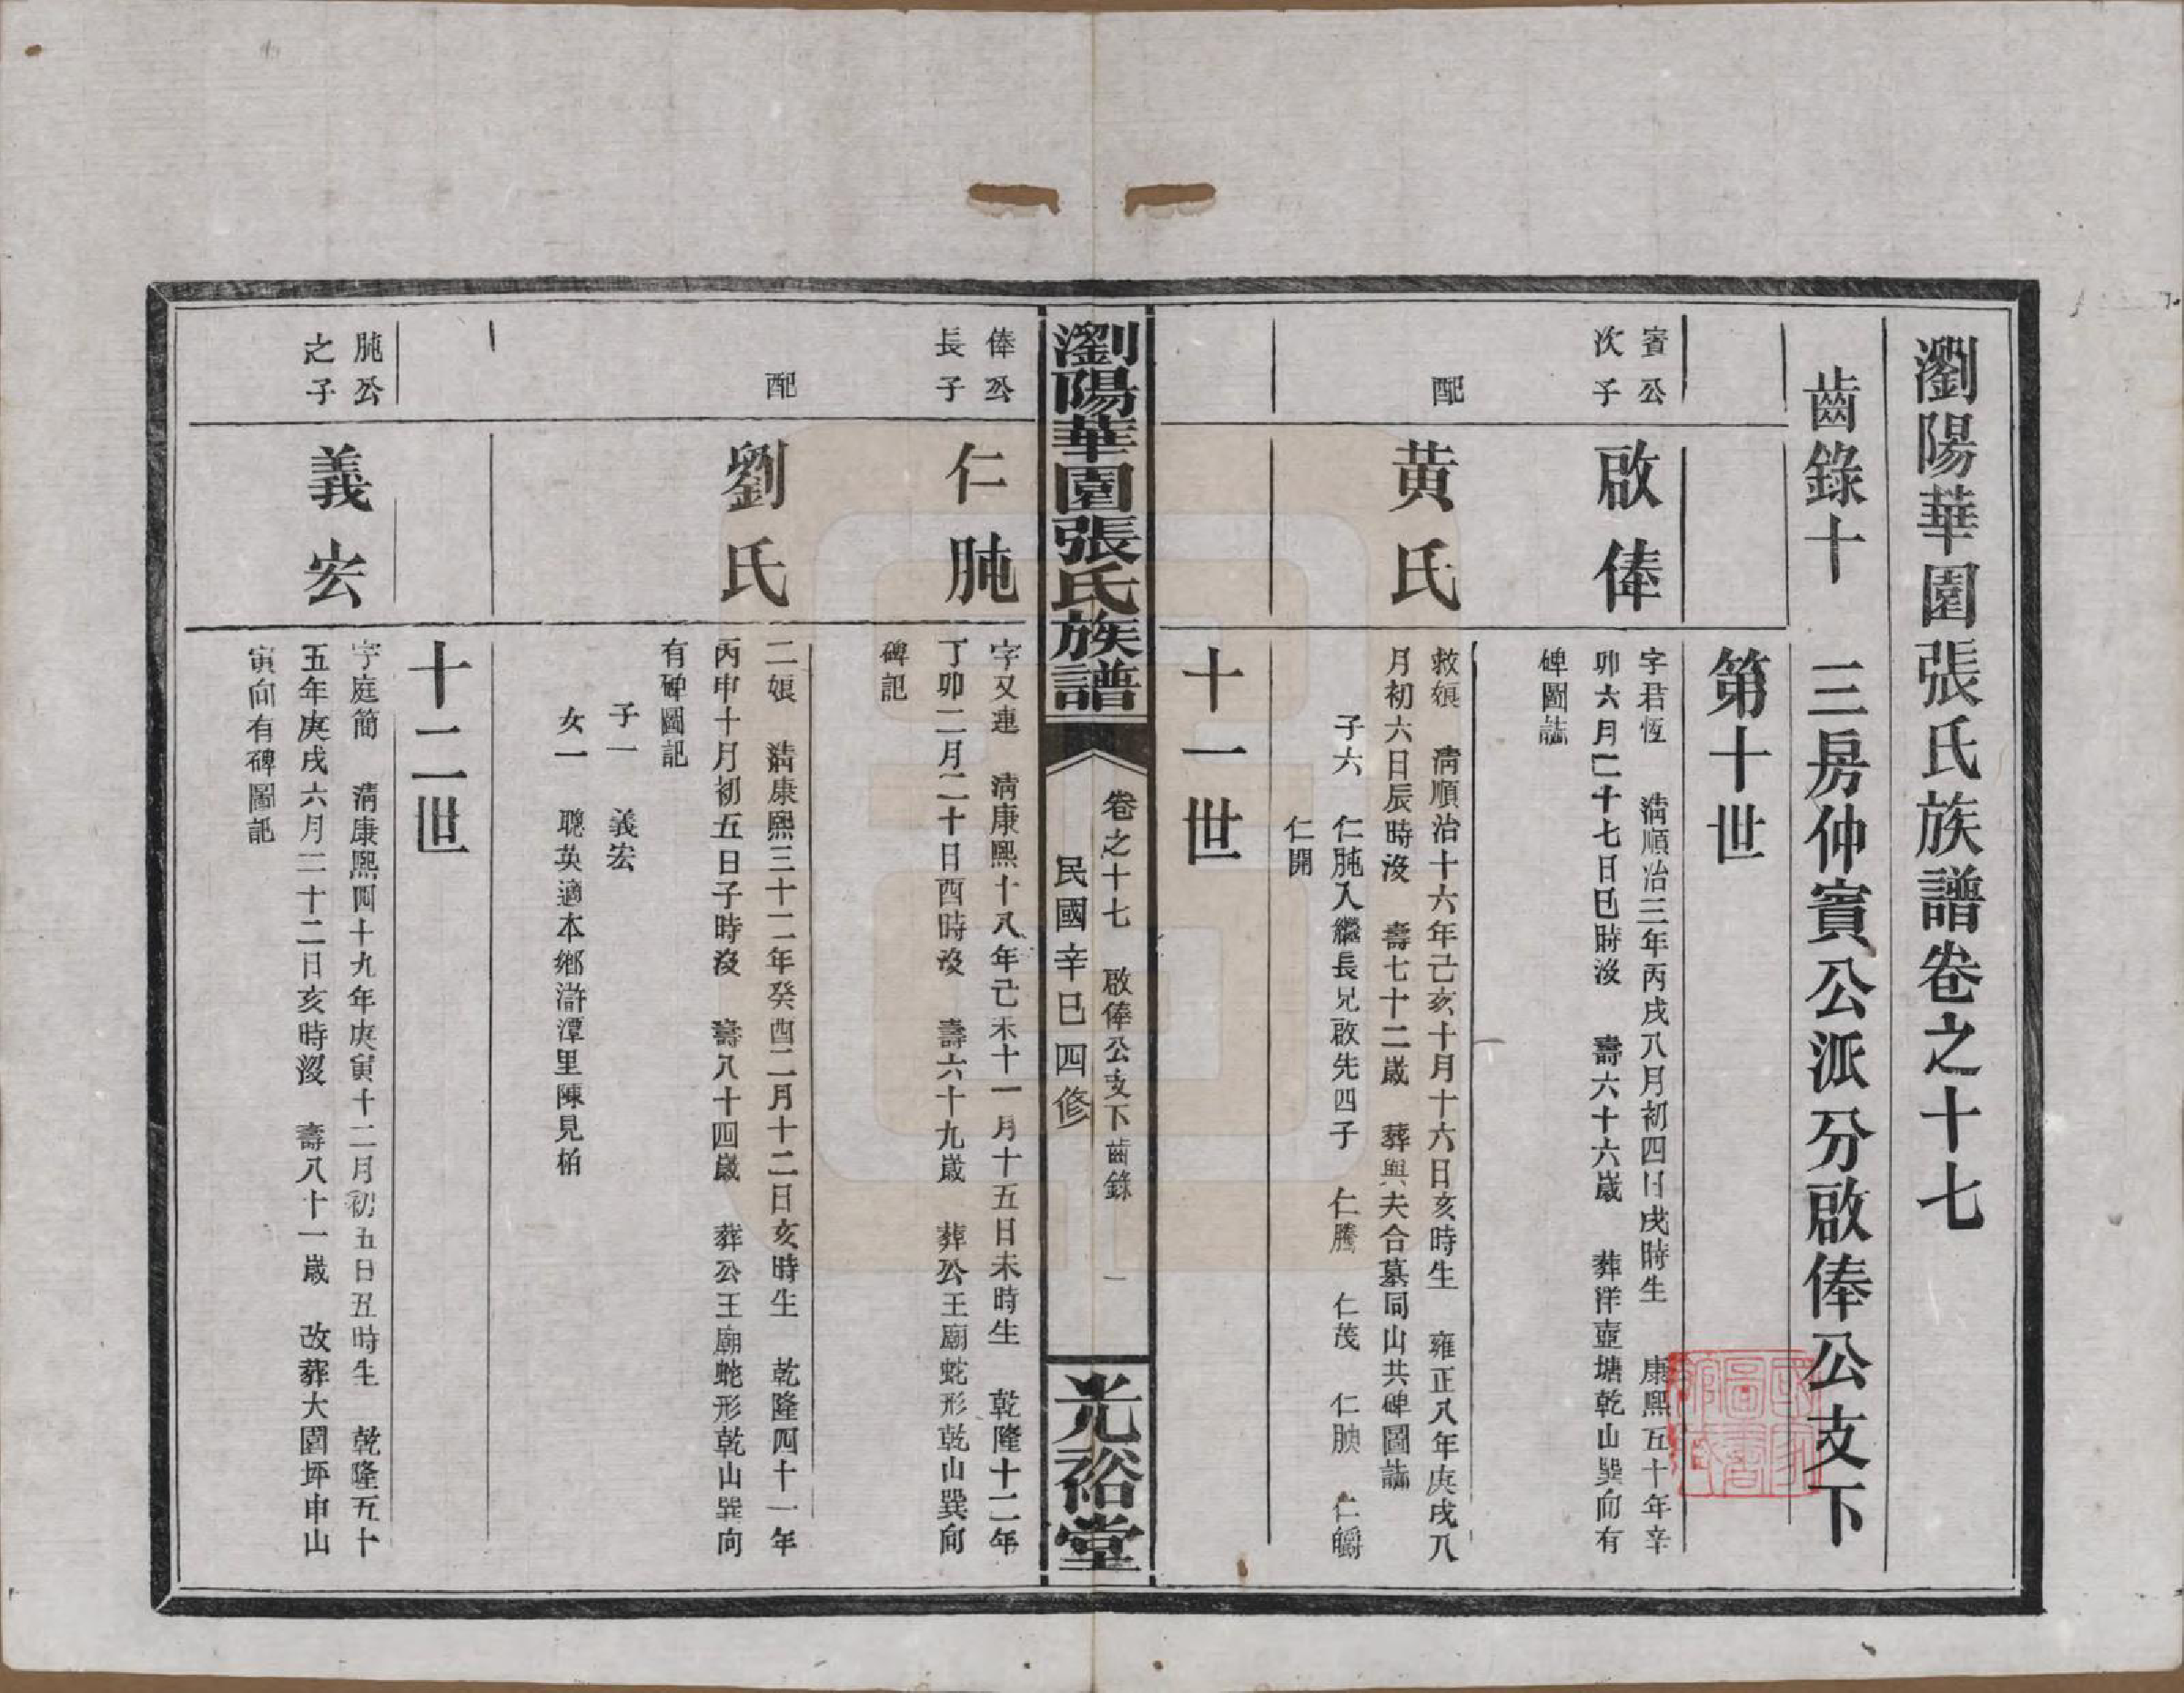 瀏陽華園張氏族譜卷之十七
齒錄十　三房仲賓公派分啟俸公支下
第十世
賓公
次子
啟俸
字君恆　清順治三年丙戌八月初四日戌時生　康熙五十年辛
卯六月二十七日巳時沒　壽六十六歲　葬洋壼塘乾山巽向有
碑圖誌
配
黃氏
救娘　清順治十六年己亥十月十六日亥時生　雍正八年庚戌八
月初六日辰時沒　壽七十二歲　葬與夫合墓同山共碑圖誌
子六　仁肫入繼長兄啟先四子　仁騰　仁茂　仁腴　仁
仁開
十一世
瀏陽華園張氏族譜
卷之十七　啟俸公支下齒錄　一
民國辛巳四修
光裕堂
俸公
長子
仁肫
字又連　清康熙十八年己未十一月十五日未時生　乾隆十二年
丁卯二月二十日酉時沒　壽六十九歲　葬公王廟蛇形乾山巽向
碑記
配
劉氏
二娘　清康熙三十二年癸酉二月十二日亥時生　乾隆四十一年
丙申十月初五日子時沒　壽八十四歲　葬公王廟蛇形乾山巽向
有碑圖記
子一　義宏
女一　聰英適本鄉滸潭里陳見柏
十二世
肫公
之子
義宏
字庭簡　清康熙四十九年庚寅十二月初五日丑時生　乾隆五十
五年庚戌六月二十二日亥時沒　壽八十一歲　改葬大園坪申山
寅向有碑圖記